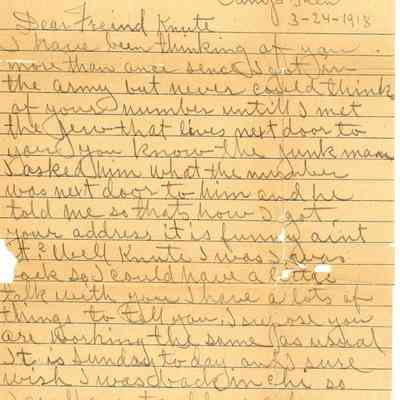 Camp
3-24-1918
Dear Freind Knute
I have been thinking of you
more than once sence I got in
the army but never could think
of your number untill I met
the Jew that lives next door to
you you know the junk man
I asked him what the number
was next door to him and he
told me so thats how I got
your address it is funny aint
it? Well Knute I wish I was
back so I could have a little
talk with you I have a lots of
things to tell you I supose you
are working the same as usual
It is Sunday to day and I sure
wish I was back in Chi so